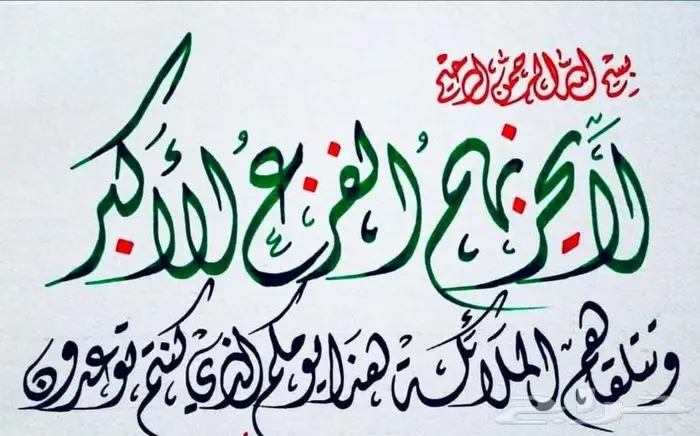 بسم الله الرحمن الرحيم
لا يحزنهم الفزع الأكبر
وتتلقاهم الملائكة هذا يومكم الذي كنتم توعدون
حراج